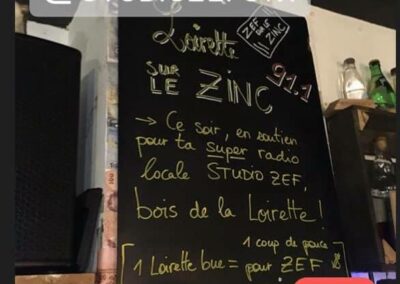 Loirette
ZEF
SUR LE
ZINC
SUR
LE ZINC
91.1
→ Ce soir, en soutien
pour ta super radio
locale STUDIO ZEF,
bois de la Loirette !
1 coup de pouce
1 Loirette bue = pour ZEF